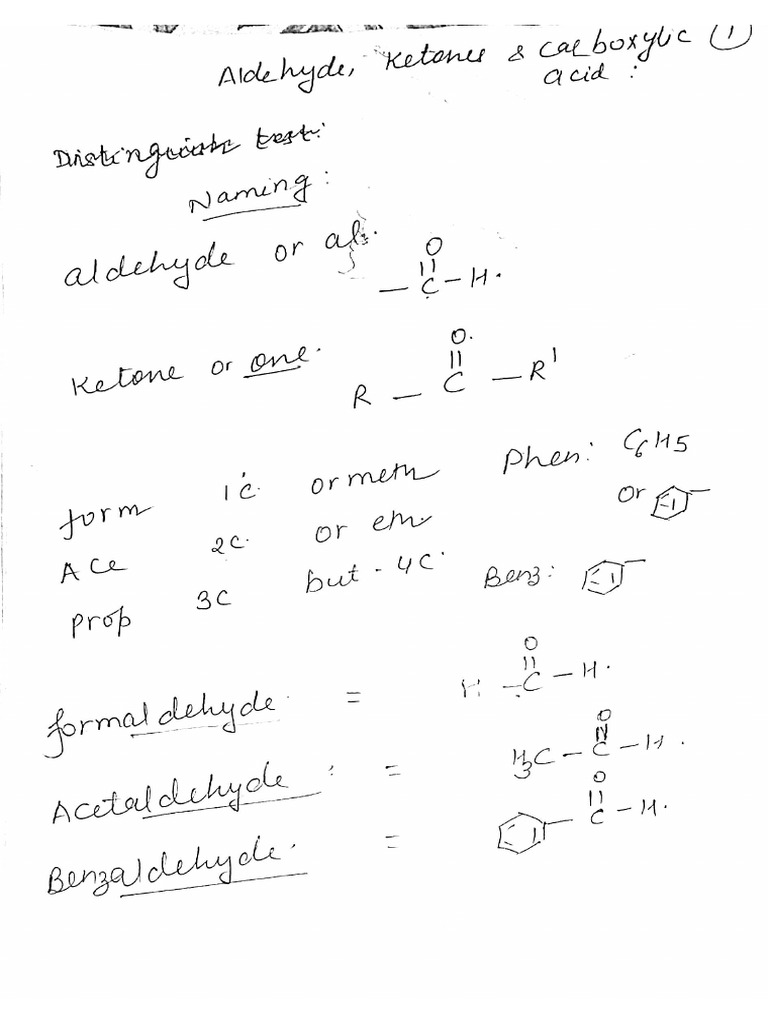 Aldehyde, Ketones & Carboxylic ①
acid :
Distinguish test:
Naming :
aldehyde or al.
O
– C – H.
Ketone or one.
O.
R – C – R'
form 1c. or meth Phen: C6H5
or
Ace 2c. or eth
Prop 3C but - 4C. Benz:
O
formaldehyde. = H – C – H.
O
Acetaldehyde : = H3C – C – H.
O
Benzaldehyde. = – C – H.